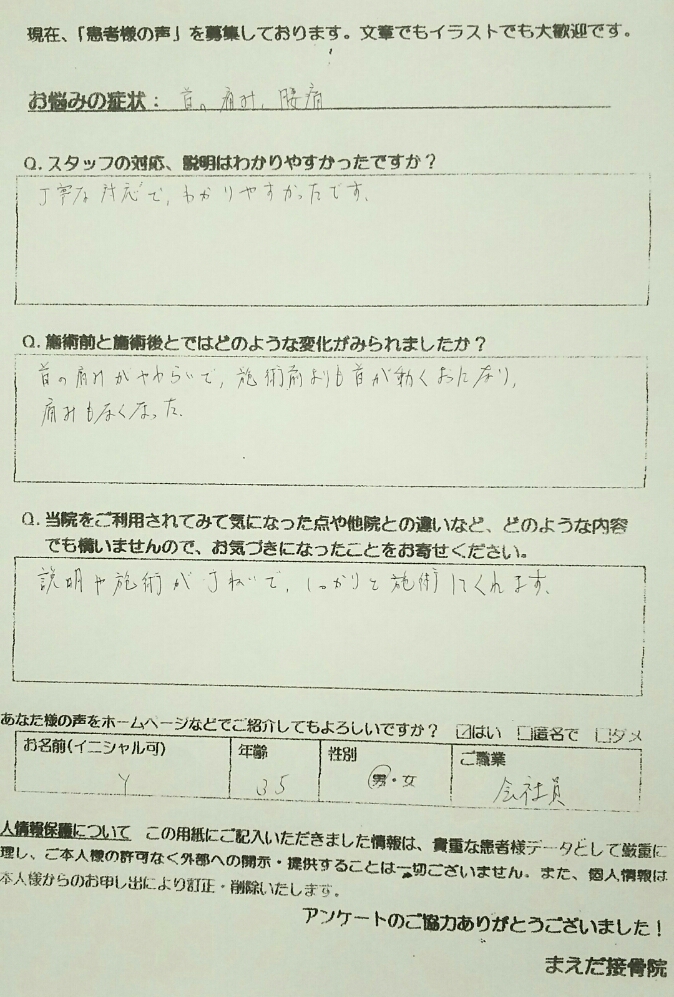 現在、「患者様の声」を募集しております。文章でもイラストでも大歓迎です。
お悩みの症状： 首の痛み、腰痛
Q. スタッフの対応、説明はわかりやすかったですか？
丁寧な対応で、わかりやすかったです。
Q. 施術前と施術後とではどのような変化がみられましたか？
首の痛みがやわらいで、施術前よりも首が動くおになり、
痛みもなくなった。
Q. 当院をご利用されてみて気になった点や他院との違いなど、どのような内容
でも構いませんので、お気づきになったことをお寄せください。
説明や施術が丁ねいで、しっかりと施術してくれます。
あなた様の声をホームページなどでご紹介してもよろしいですか？ ☑はい □匿名で □ダメ
お名前(イニシャル可) 年齢 性別 ご職業
Y 35 男・女 会社員
人情報保護について この用紙にご記入いただきました情報は、貴重な患者様データとして厳重に
理し、ご本人様の許可なく外部への開示・提供することは一切ございません。また、個人情報は
本人様からのお申し出により訂正・削除いたします。
アンケートのご協力ありがとうございました！
まえだ接骨院